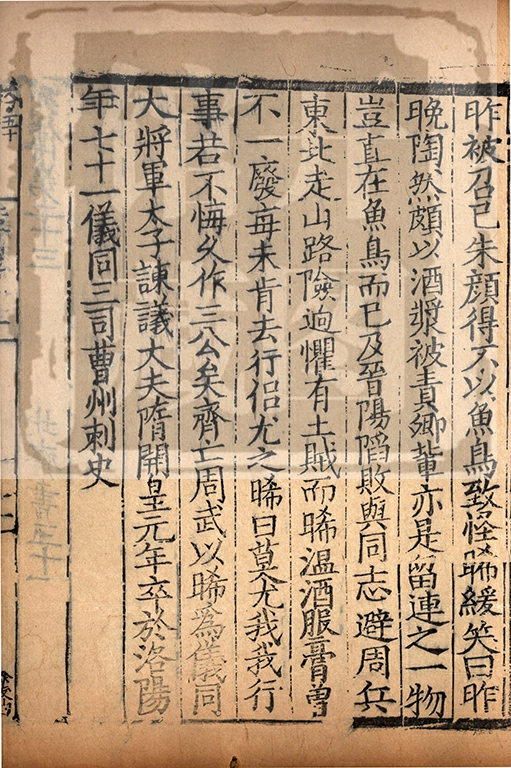 昨被召已朱顔得不以魚鳥致怪晞緩笑曰昨
晚陶然頗以酒漿被責卿輩亦是留連之一物
豈直在魚鳥而已及晉陽陷敗與同志避周兵
東北走山路險逈懼有土賊而晞温酒服膏曽
不一廢每未肯去行侣尤之晞曰莫尤我我行
事若不悔久作三公矣齊亡周武以晞為儀同
大將軍太子諫議大夫隋開皇元年卒於洛陽
年七十一儀同三司曹州刺史